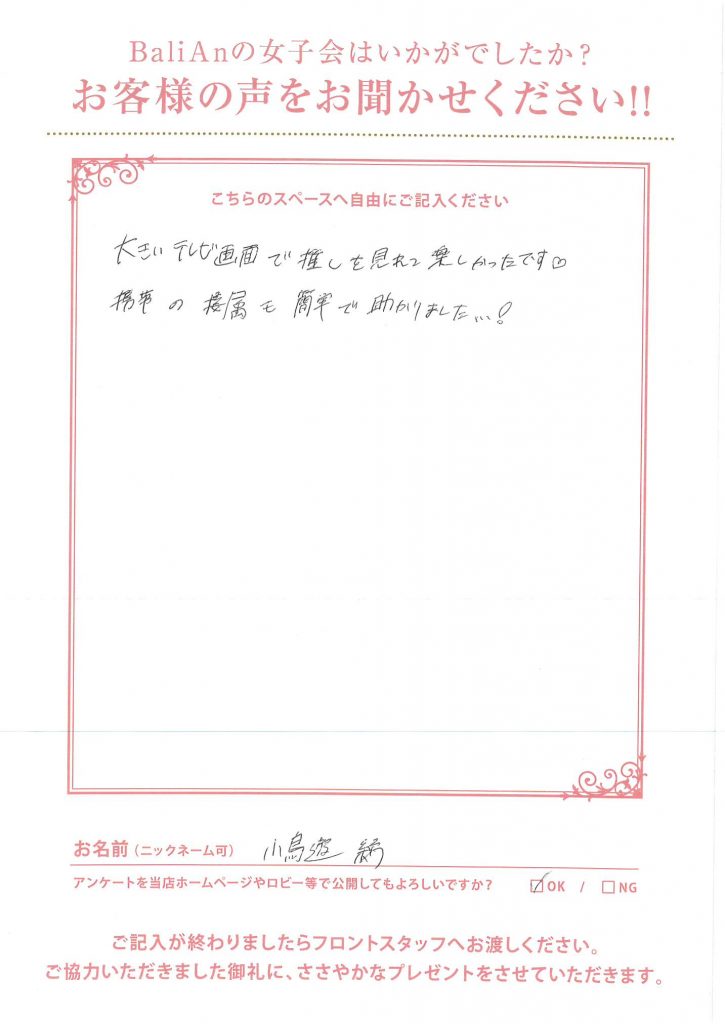 BaliAnの女子会はいかがでしたか?
お客様の声をお聞かせください!!
こちらのスペースへ自由にご記入ください
大きいテレビ画面で推しを見れて楽しかったです♡
携帯の接属も簡単で助かりました...!
お名前(ニックネーム可) 小鳥遊
アンケートを当店ホームページやロビー等で公開してもよろしいですか? ☑OK / □NG
ご記入が終わりましたらフロントスタッフへお渡しください。
ご協力いただきました御礼に、ささやかなプレゼントをさせていただきます。